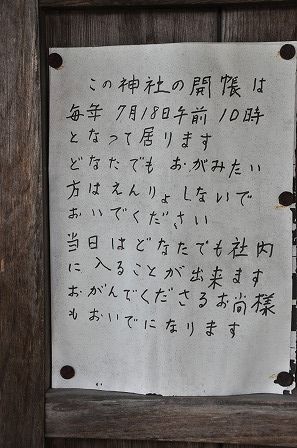 この神社の開帳は
毎年 7月18日午前 10時
となって居ります
どなたでも おがみたい
方はえんりょしないで
おいでください
当日はどなたでも社内
に入ることが出来ます
おがんでくださるお尚様
もおいでになります